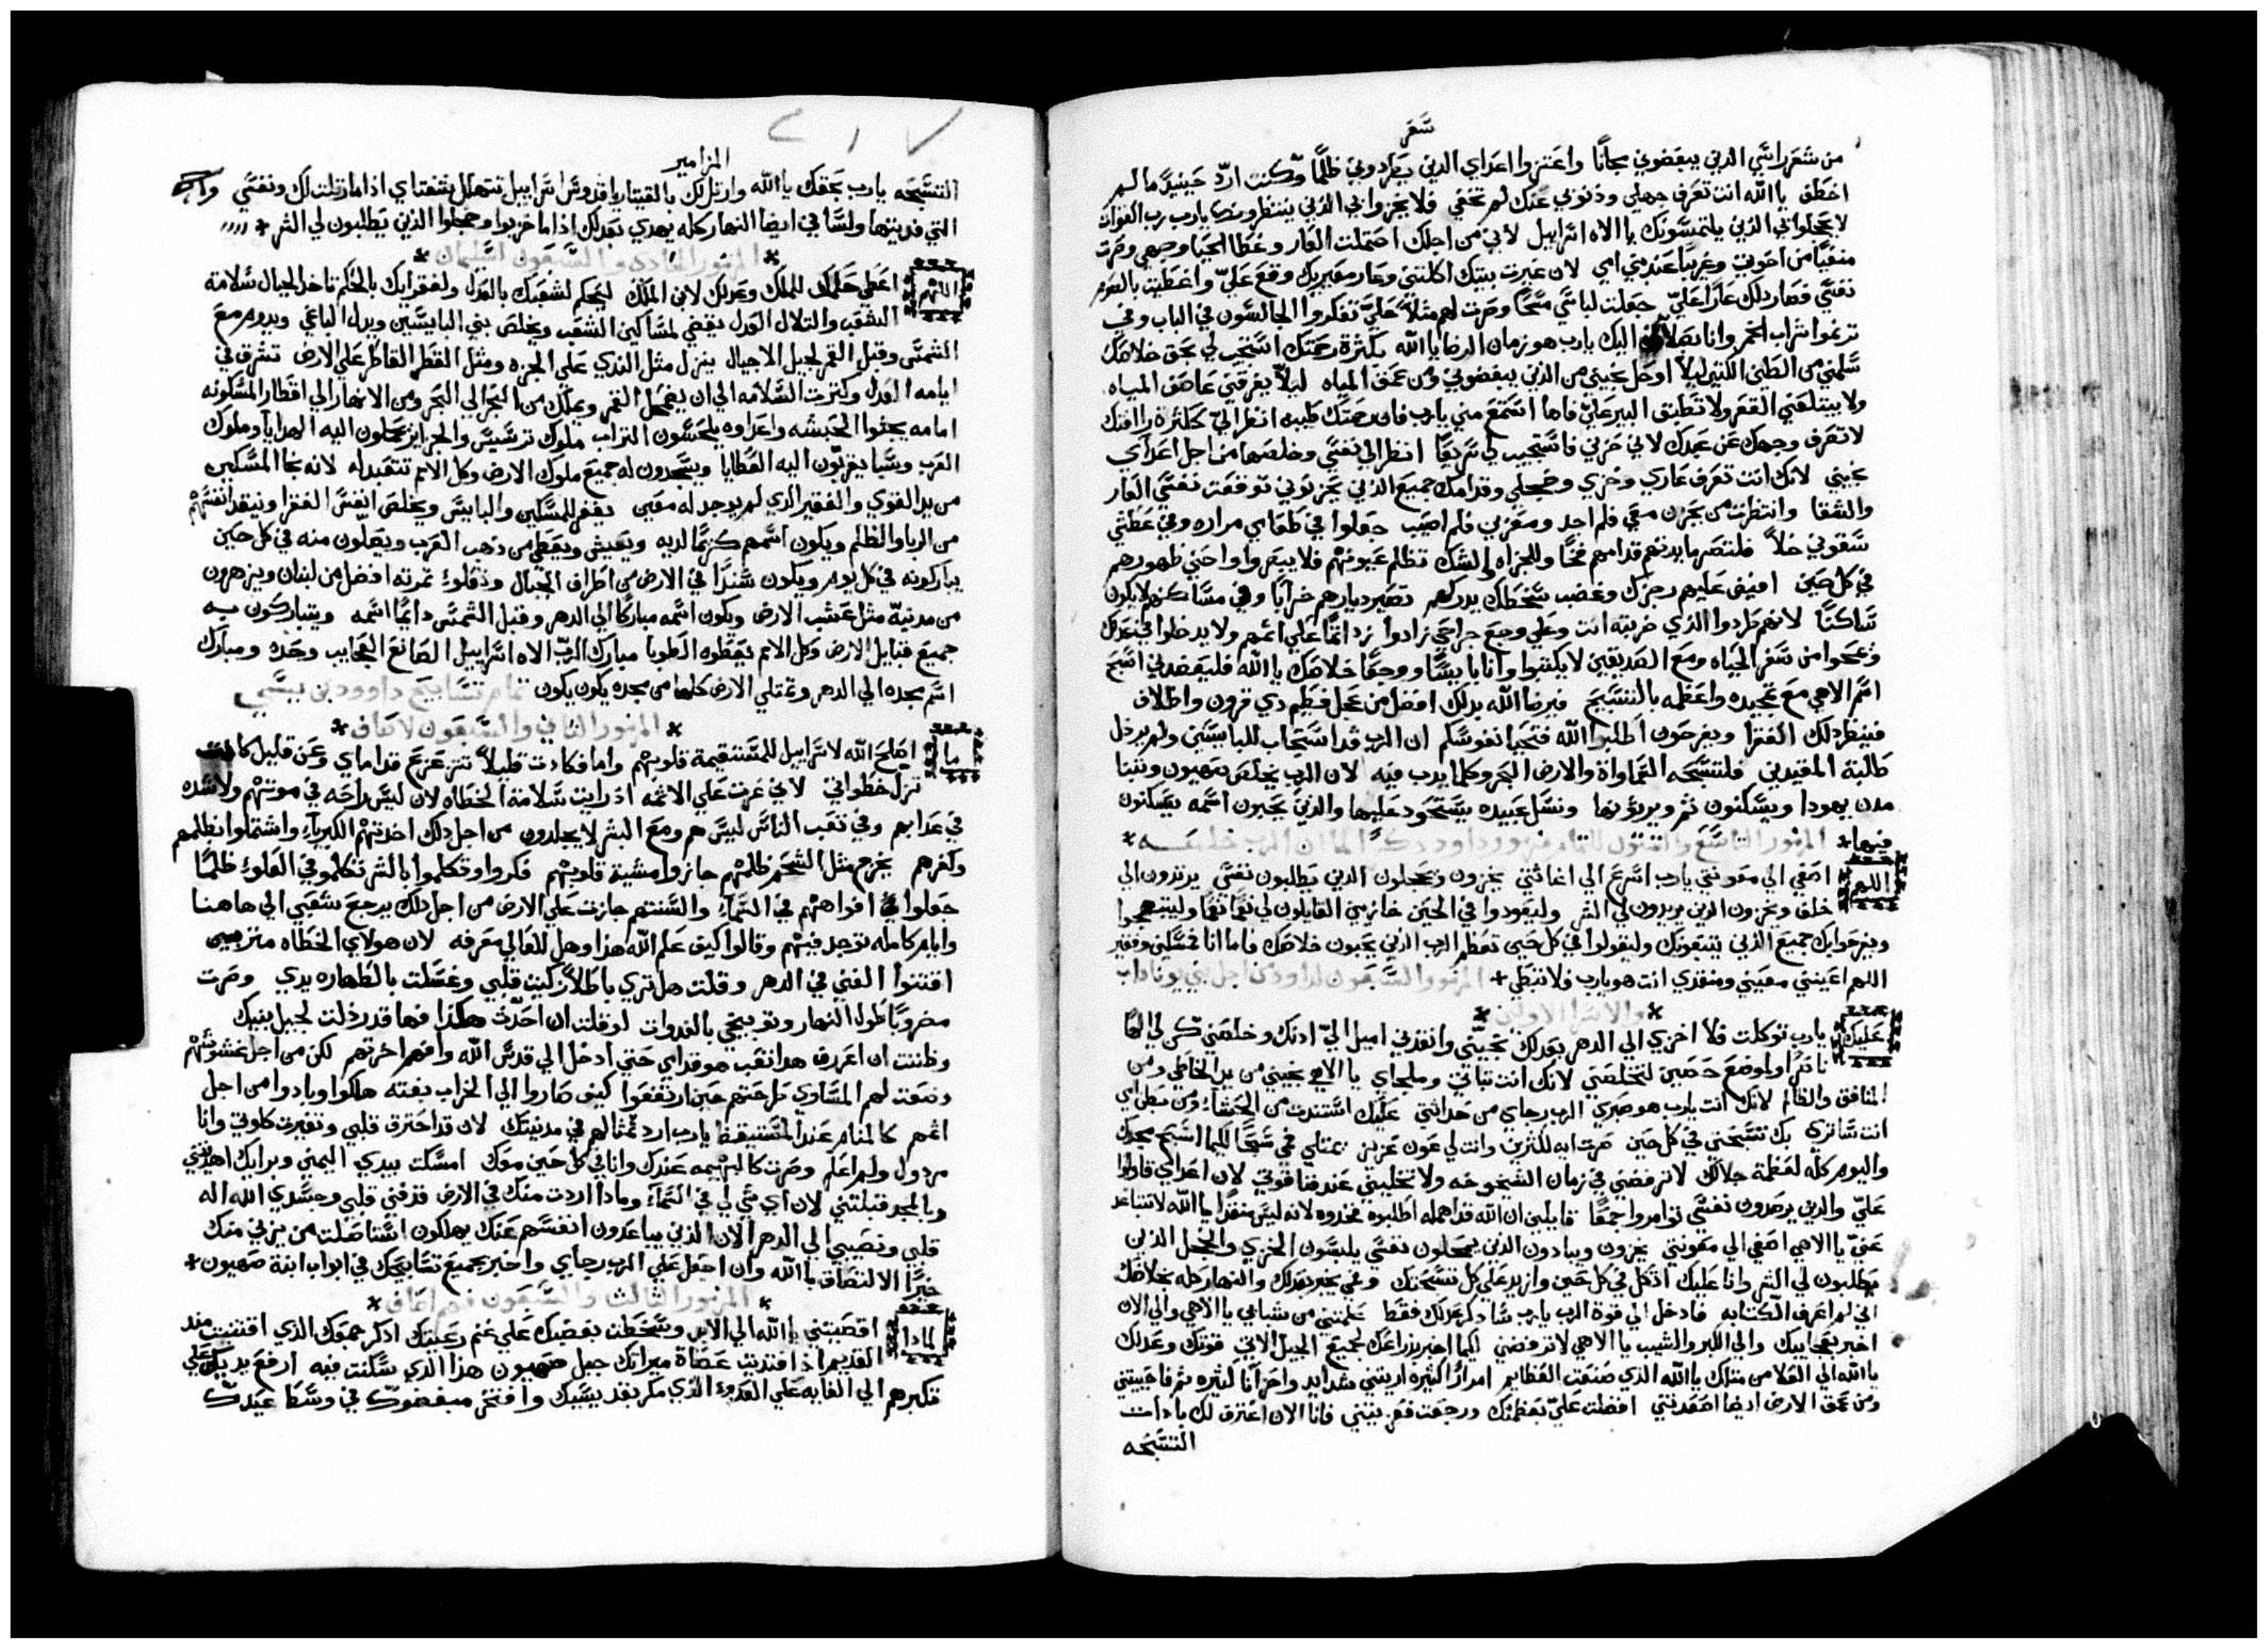 سفر
من شعر راسي الذين يبغضوني مجانًا واعتزوا اعداي الذين يطردوني ظلمًا وكنت اردّ حينيذٍ ما لم
اخطف يا الله انت تعرف جهلي وذنوبي عنك لم تخفي فلا يخزوا بي الذين ينتظرونك يا رب رب القوات
لا يخجلوا بي الذين يلتمسونك يا الاه اسراييل لاني من اجلك احتملت العار وغطا الحيا وجهي وصرت
منفيًا من اخوتي وغريبًا عند بني امي لان غيرت بيتك اكلتني وعار معيريك وقع عليّ واعطيت بالصوم
نفسي فصار ذلك عارًا عليّ جعلت لباسي مسحًا وصرت لهم مثلًا عليّ تفكروا الجالسون في الباب وفيّ
ترنموا شراب الخمر وانا بصلاتي اليك يا رب هو زمان الرضا يا الله بكثرة رحمتك استجب لي بحق خلاصك
سلمني من الطين لكيلا اوحل نجيني من الذين يبغضوني ومن عمق المياه ليلا يغرقني عاصف المياه
ولا يبتلعني القعر ولا تطبق البير عليّ فاها استمع مني يا رب فان رحمتك طيبه انظر اليّ ككثرة رافتك
لا تصرف وجهك عن عبدك لاني حزين فاستجيب لي سريعًا انظر الي نفسي وخلصها من اجل اعداي
نجيني لانك انت تعرف عاري وخزي وخجلي وقدامك جميع الذين يحزنوني توقعت نفسي العار
والشقا وانتظرت من يحزن معي فلم احد ومعزين فلم اصيب جعلوا في طعامي مراره وفي عطشي
سقوني خلًا فلتصر مايدتهم قدامهم فخًا وللجزاه والشك تظلم عيونهم فلا يبصروا واحني ظهورهم
في كل حين افيض عليهم رجزك وغضب سخطك يدركهم تصير ديارهم خرابًا وفي مساكنهم لا يكون
ساكنًا لانهم طردوا الذي ضربته انت وعلي وجع جراحي زادوا زد اثمًا علي اثمهم ولا يدخلوا في عدلك
ومحوا من سفر الحياه ومع الصديقين لا يكتبوا وانا بايسًا ووجعًا خلاصك يا الله فليعضدني اسبح
اسم الاهي مع تمجيده واعظمه بالتسبيح فيرضا الله بذلك افضل من عجل فطيم ذي قرون واظلاف
فينظر ذلك الفقرا ويفرحون اطلبوا الله فتحيا نفوسكم ان الرب قد استجاب للبايسين ولم يرذل
طالبة المقيدين فلتسبحه السماوات والارض البحر وكلما يدب فيه لان الرب يخلص صهيون وتبنا
مدن يهودا ويسكنون ثم ويرثونها ونسل عبيده يستحوذ عليها والذين يحبون اسمه يسكنون
فيها * المزمور التاسع والستون للتمام مزمور داود
اللهم اصغي الي معونتي يا رب اسرع الي اغاثتي يخزون ويخجلون الذين يطلبون نفسي يرتدون الي
خلف ويخزون الذين يريدون لي الشر وليعودوا في الحين خازين القايلون لي نعمًا نعمًا وليبتهجوا
ويفرحوا بك جميع الذين يبتغونك وليقولوا في كل حين تعظم الرب الذين يحبون خلاصك فاما انا فمسكين وفقير
اللهم اعينني معيني ومنقذي انت هو يا رب فلا تبطي * المزمور السبعون لداود من اجل بني يوناداب
* والاسرا الاولين *
عليك يا رب توكلت فلا اخزي الي الدهر بعدلك نجيني وانقذني اميل اليّ ادنك وخلصني كن لي الهًا
ناصرًا ولموضع حصين لتخلصني لانك انت ثباتي وملجاي يا الاهي نجيني من يد الخاطي ومن
المنافق والظالم لانك انت يا رب هو صبري الرب رجاي من حداثتي عليك استندت من الحشا ومن بطن امي
انت ساتري بك تسبحتي في كل حين صرت ايه لكثيرين وانت لي عون عزيز يمتلي فمي سبحًا لكيما اسبح مجدك
واليوم كله لعظمة جلالك لا ترفضني في زمان الشيخوخه ولا تخليني عند فنا قوتي لان اعداي قالوا
عليّ والذين يرصدون نفسي توامروا جمعًا قايلين ان الله قد اهمله اطلبوه فخدوه لانه ليس منقذًا يا الله لا تتباعد
عنيّ يا الاهي اصغي الي معونتي يخزون ويبادون الذين يمحلون نفسي يلبسون الخزي والخجل الذين
يطلبون لي الشر وانا عليك اتكل في كل حين وازيد علي كل تسبحتك وفمي يخبر بعدلك والنهار كله بخلاصك
اني لم اعرف الكتابه فادخل الي قوة الرب يا رب ساذكر عدلك فقط علمتني من شبابي يا الاهي والي الان
اخبر بعجايبك والي الكبر والشيب يا الاهي لا ترفضني لكيما اخبر بذراعك لجميع الجيل الاتي قوتك وعدلك
يا الله الي العلا من مثلك يا الله الذي صنعت العظايم امرارًا كثيره اريتني شدايد واحزانًا كثيره ثم فاحييتني
ومن عمق الارض ايضًا اصعدتني افضلت عليّ بعظمتك ورجعت فعزيتني فانا الان اعترف لك بادات
التسبحه
المزامير
التسبحه يا رب بحقك يا الله وارتل لك بالقيتار يا قدوس اسراييل تتهلل شفتاي اذا ما رتلت لك ونفسي
التي فديتها ولساني ايضا النهار كله يهدي بعدلك اذا ما خزيوا وخجلوا الذين يطلبون لي الشر *
* المزمور الحادي والسبعون لسليمان *
اللهم اعطي حكمك للملك وعدلك لابن الملك ليحكم لشعبك بالعدل ولفقرايك بالحكم تاخذ الجبال سلامة
الشعب والتلال العدل يقضي لمساكين الشعب ويخلص بني البايسين ويذل الباغي ويدوم مع
الشمس وقبل القمر لجيل الاجيال ينزل مثل الندي علي الجزه ومثل القطر القاطر علي الارض تشرق في
ايامه العدل وكثرت السلامه الي ان يضمحل القمر ويملك من البحر الي البحر ومن الانهار الي اقطار المسكونه
امامه يجثوا الحبشه واعداوه يلحسون التراب ملوك ترسيس والجزاير يحملون اليه الهدايا وملوك
العرب وسبا يقربون اليه العطايا ويسجدون له جميع ملوك الارض وكل الامم تتعبد له لانه نجا المسكين
من يد القوي والفقير الذي لم يوجد له معين يغفر للمسكين والبايس ويخلص انفس الفقرا وينقذ انفسهم
من الربا والظلم ويكون اسمهم كريمًا لديه ويعيش ويعطي من ذهب العرب ويصلون منه في كل حين
يباركونه في كل يوم ويكون سندًا في الارض من اطراف الجبال وتعلوا ثمرته افضل من لبنان ويزهرون
من مدينة مثل عشب الارض ويكون اسمه مباركًا الي الدهر وقبل الشمس دايمًا اسمه ويتباركون به
جميع قبايل الارض وكل الامم تعطوه الطوبا مبارك الربّ الاه اسراييل الصانع العجايب وحده ومبارك
اسم مجده الي الدهر وتمتلي الارض كلها من مجده يكون يكون تمام تسابيح داوود بن يسي
* المزمور الثاني والسبعون لاصاف *
ما اصلح الله لاسراييل للمستقيمة قلوبهم واما فكادت قليلًا تتزعزع قدماي وعن قليل كادت
تزل خطواتي لاني غرت علي الاثمه اذ رايت سلامة الخطاه لان ليس راحه في موتهم ولا شده
في عذابهم وفي تعب الناس ليس هم ومع البشر لا يجلدون من اجل ذلك اخذتهم الكبرياء واشتملوا بظلمهم
وكفرهم يخرج مثل الشحم ظلمهم جازوا مشية قلوبهم فكروا وتكلموا بالشر تكلموا في العلوء ظلمًا
جعلوا في افواههم في السماء والسنتهم جازت علي الارض من اجل ذلك يرجع شعبي الي هاهنا
وايام كامله توجد فيهم وقالوا كيف علم الله هذا وهل للعالي معرفه لان هولاي الخطاه منزهين
اقتنوا الغني في الدهر وقلت هل تري باطلًا زكيت قلبي وغسلت بالطهاره يدي وصرت
مضروبًا طول النهار وتوبيخي بالغدوات لو قلت ان احدّث هكذا فها قد رذلت لجيل بنيك
وظننت ان اعرف هذا تعب هو قدامي حتي ادخل الي قدس الله وافهم اخرتهم لكن من اجل غشوشهم
وضعت لهم المساوي طرحتهم حين ارتفعوا كيف صاروا الي الخراب بغته هلكوا وبادوا من اجل
اثمهم كالمنام عند المستيقظ يا رب ارد تمثالهم في مدينتك لان قد احترق قلبي وتغيرت كلوتي وانا
مردول ولم اعلم وصرت كالبهيمه عندك وانا في كل حين معك امسكت بيدي اليمني وبرايك اهديتني
وبالمجد قبلتني لان اي شي لي في السماء وماذا اردت منك في الارض قد فني قلبي وجسدي الله اله
قلبي ونصيبي الي الدهر لان الذين يباعدون انفسهم عنك يهلكون استاصلت من يزني منك
خيرًا الالتصاق بالله وان اجعل علي الرب رجاي واخبر بجميع تسابيحك في ابواب ابنة صهيون *
* المزمور الثالث والسبعون فهم اصاف *
لماذا اقصيتني يا الله الي الابد وسخطت بغضبك علي غنم رعيتك اذكر جمعك الذي اقتنيت منذ
القديم اذ افتديت عصاة ميراثك جبل صهيون هذا الذي سكنت فيه ارفع يديك علي
تكبرهم الي الغايه علي العدوء الذي مكر بقديسيك وافتخر مبغضوك في وسط عيدك